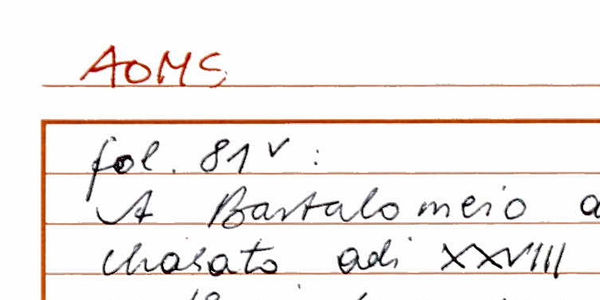 AOMS
fol. 81v:
A Bartalomeio
chasato adi XXVIII